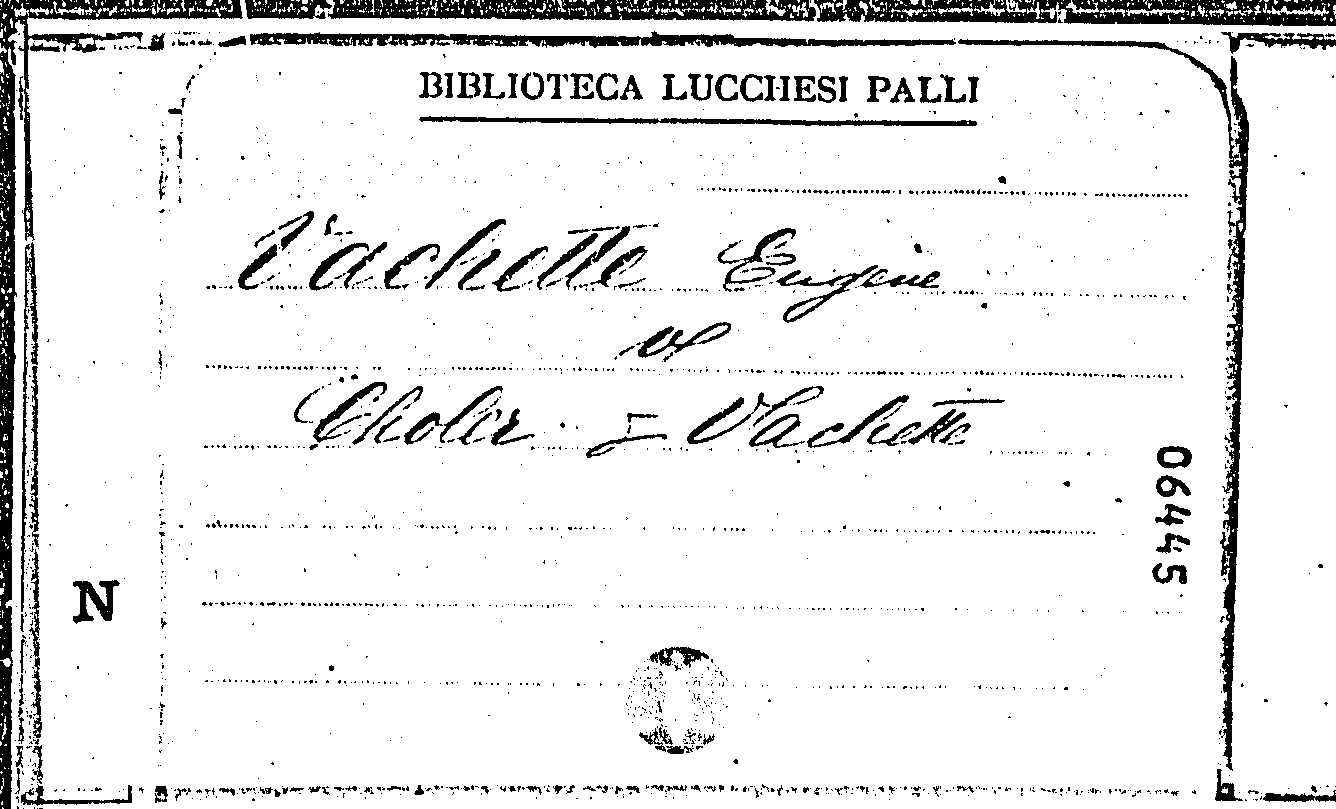 BIBLIOTECA LUCCHESI PALLI
Vachette Eugène
Choler - Vachette
06445
N